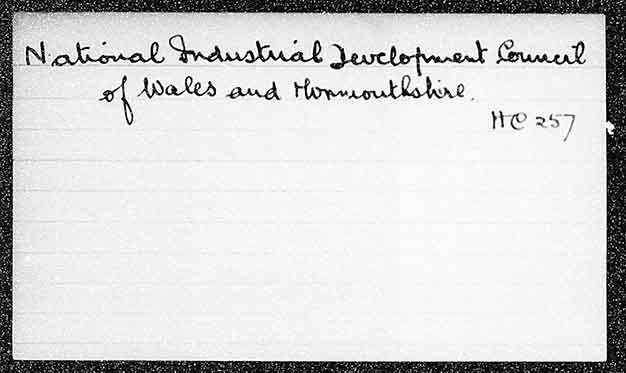 National Industrial Development Council
of Wales and Monmouthshire.
HC 257